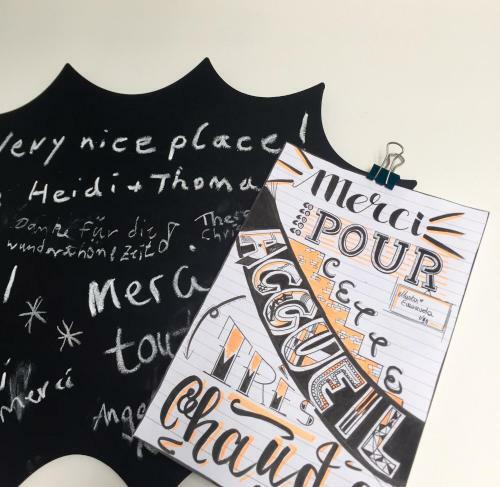 very nice place!
Heidi + Thoma
Danke für die
wunderschöne Zeit!
Merc
tout
merci
Ang
Merci
POUR
CETTE
ACCUEIL
TRES
Chaud